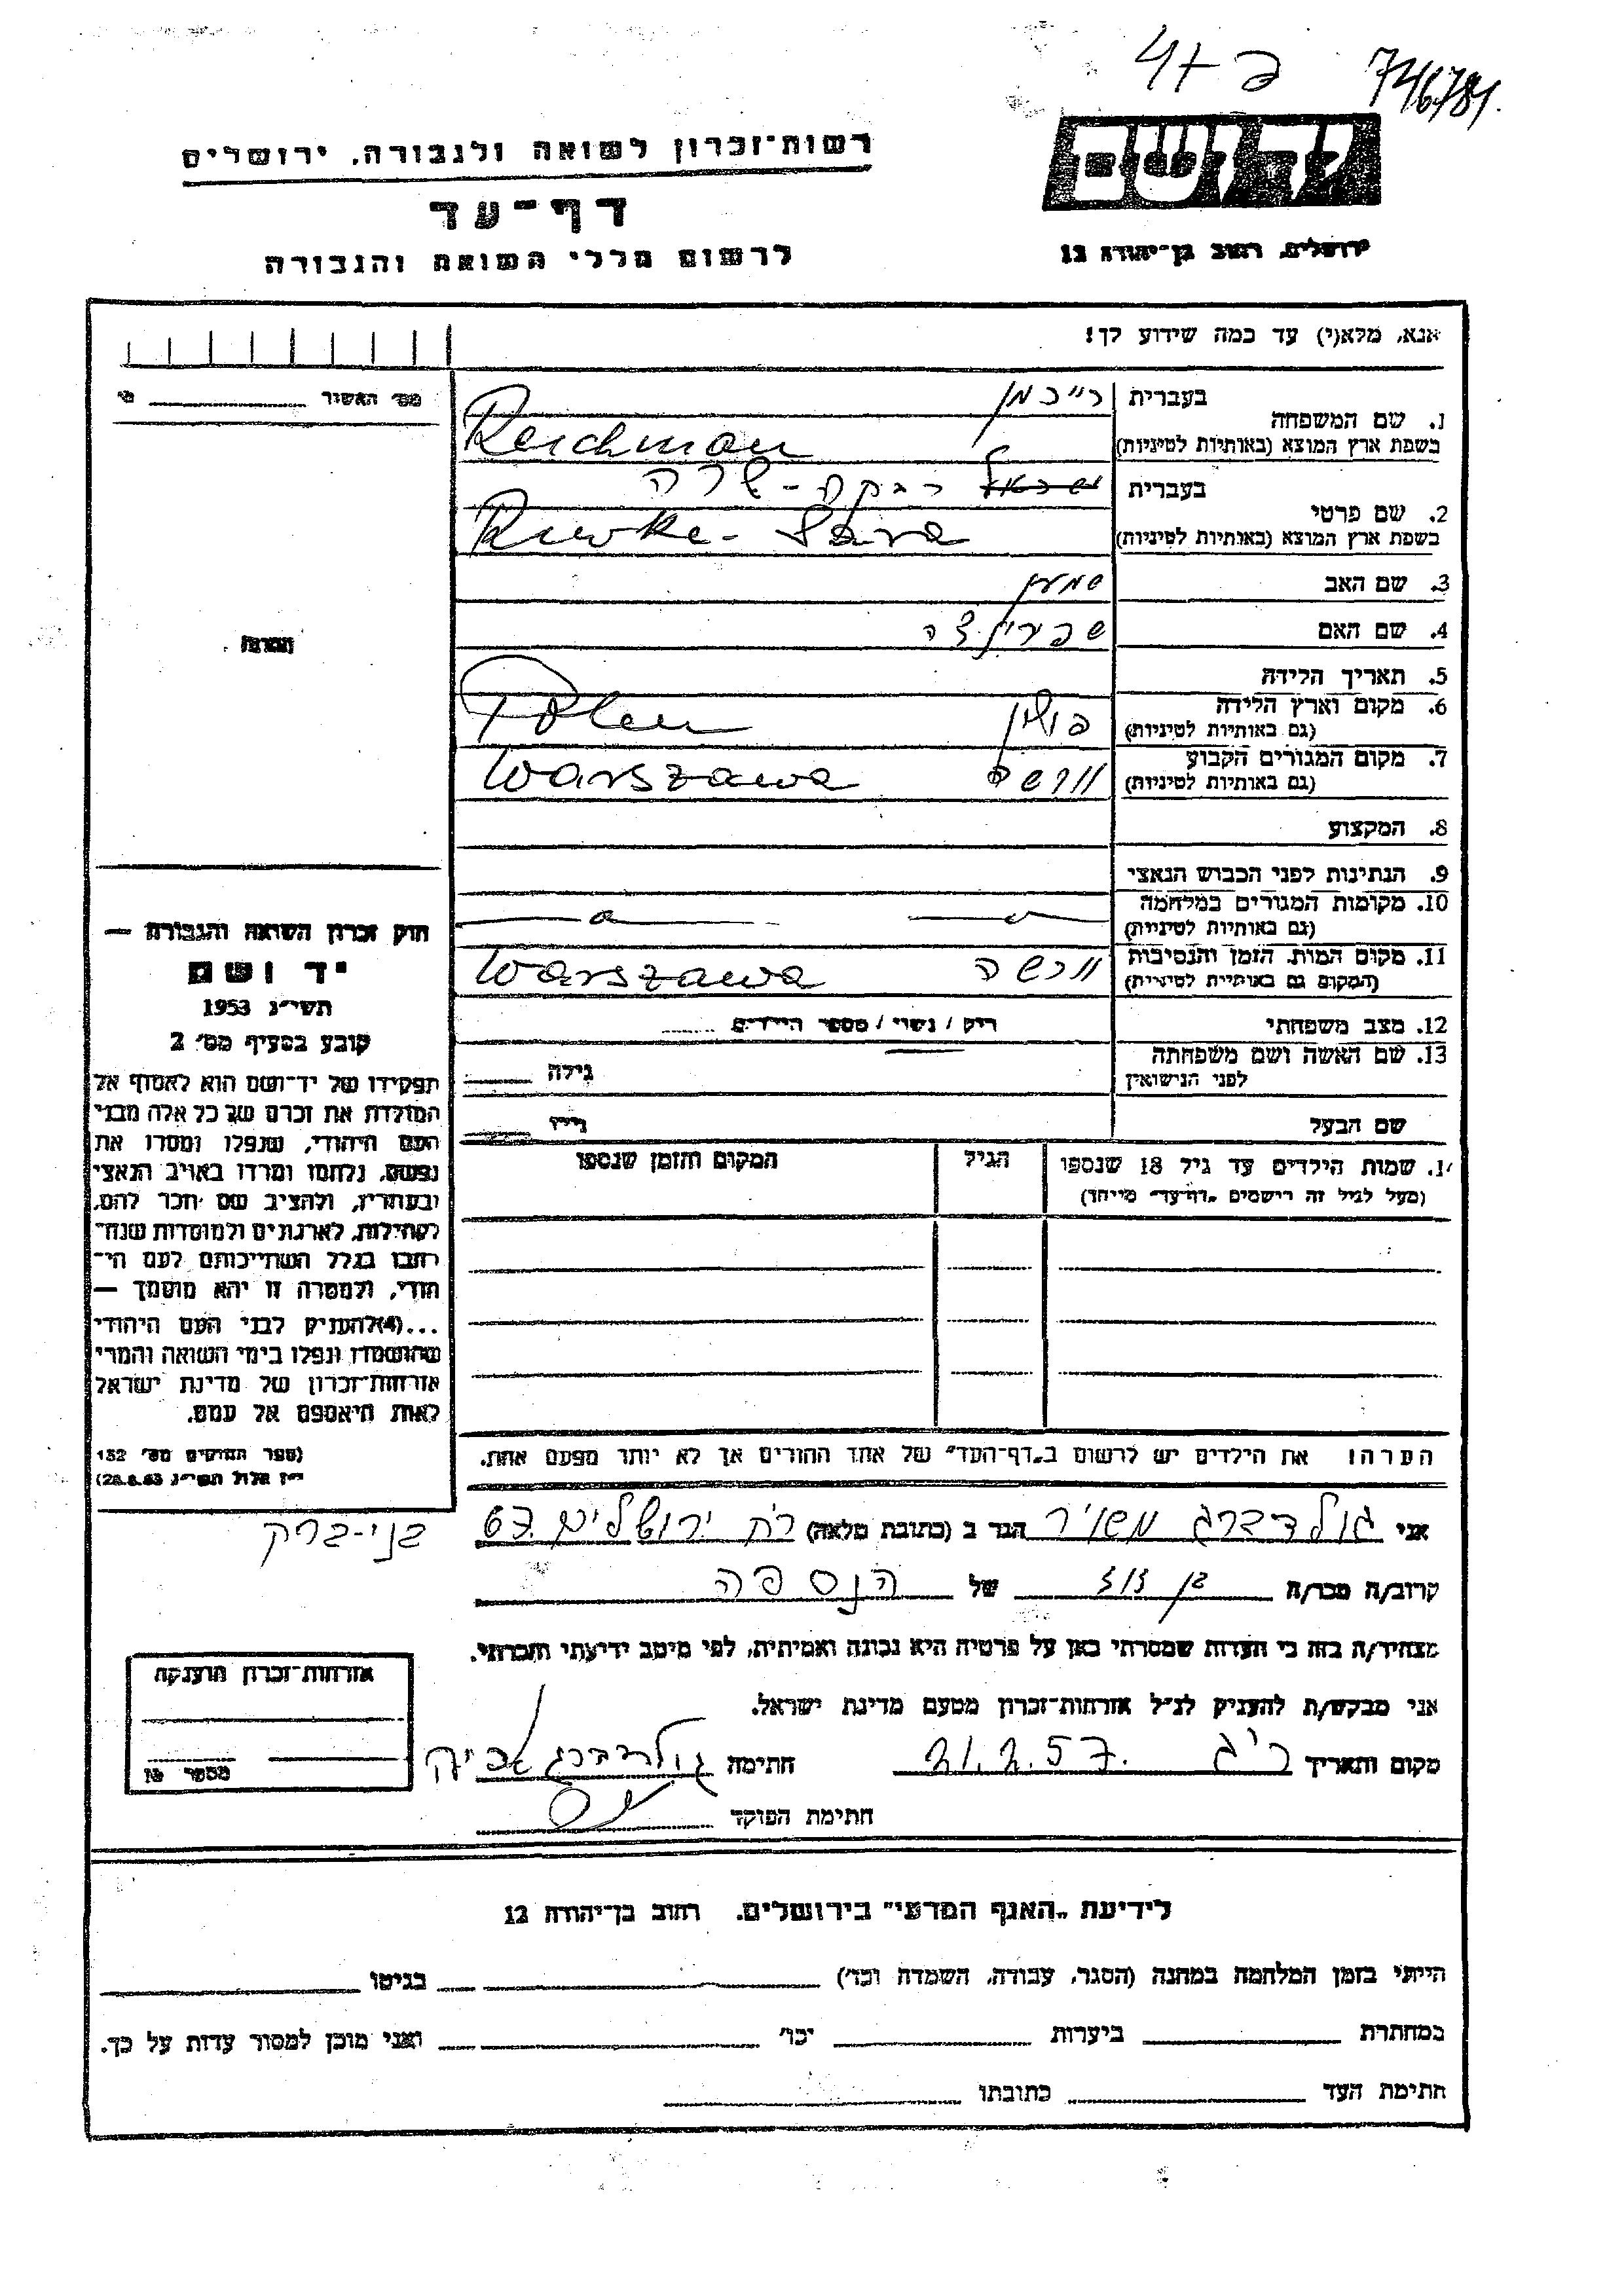 746781.
יד ושם
רשות־זכרון לשואה ולגבורה, ירושלים
דף־עד
לרשום חללי השואה והגבורה
ירושלים, רחוב בן־יהודה 12
אנא, מלא(י) עד כמה שידוע לך!
1. שם המשפחה בעברית רייכמן
בשפת ארץ המוצא (באותיות לטיניות) Reichman
2. שם פרטי בעברית רבקה-שרה
בשפת ארץ המוצא (באותיות לטיניות) Riwke-Sara
3. שם האב שמעון
4. שם האם שפרינצה
5. תאריך הלידה
6. מקום וארץ הלידה פולין Polen
(גם באותיות לטיניות)
7. מקום המגורים הקבוע וורשה Warszawa
(גם באותיות לטיניות)
8. המקצוע
9. הנתינות לפני הכבוש הנאצי
10. מקומות המגורים במלחמה
(גם באותיות לטיניות)
11. מקום המות, הזמן והנסיבות וורשה Warszawa
(המקום גם באותיות לטיניות)
12. מצב משפחתי רוק / נשוי / מספר הילדים
13. שם האשה ושם משפחתה גילה
לפני הנישואין
שם הבעל גילו
14. שמות הילדים עד גיל 18 שנספו הגיל המקום והזמן שנספו
(מעל לגיל זה רושמים „דף־עד" מיוחד)
הערה: את הילדים יש לרשום ב„דף־העד" של אחד ההורים אך לא יותר מפעם אחת.
מס' האשור
הערות
חוק זכרון השואה והגבורה —
יד ושם
תשי״ג 1953
קובע בסעיף מס' 2
תפקידו של יד־ושם הוא לאסוף אל
המולדת את זכרם של כל אלה מבני
העם היהודי, שנפלו ומסרו את
נפשם, נלחמו ומרדו באויב הנאצי
ובעוזריו, ולהציב שם וזכר להם,
לקהילות, לארגונים ולמוסדות שנח־
רבו בגלל השתייכותם לעם הי־
הודי, ולמטרה זו יהא מוסמך —
...(4) להעניק לבני העם היהודי
שהושמדו ונפלו בימי השואה והמרי
אזרחות־זכרון של מדינת ישראל
לאות היאספם אל עמם.
(ספר החוקים מס' 132
י״ז אלול תשי״ג 28.8.53)
אני גולדברג מאיר הגר ב (כתובת מלאה) רח ירושלים 67. בני-ברק
קרוב/ה מכר/ה בן דוד של הנספה
מצהיר/ה בזה כי העדות שמסרתי כאן על פרטיה היא נכונה ואמיתית, לפי מיטב ידיעתי והכרתי.
אני מבקש/ת להעניק לנ״ל אזרחות־זכרון מטעם מדינת ישראל.
מקום ותאריך ר״ג 21.2.57. חתימה גולדברג
חתימת הפוקד
אזרחות־זכרון הוענקה
מספר
לידיעת „האגף המדעי" בירושלים, רחוב בן־יהודה 12
הייתי בזמן המלחמה במחנה (הסגר, עבודה, השמדה וכו') בגיטו
במחתרת ביערות וכו' ואני מוכן למסור עדות על כך.
חתימת העד כתובתו